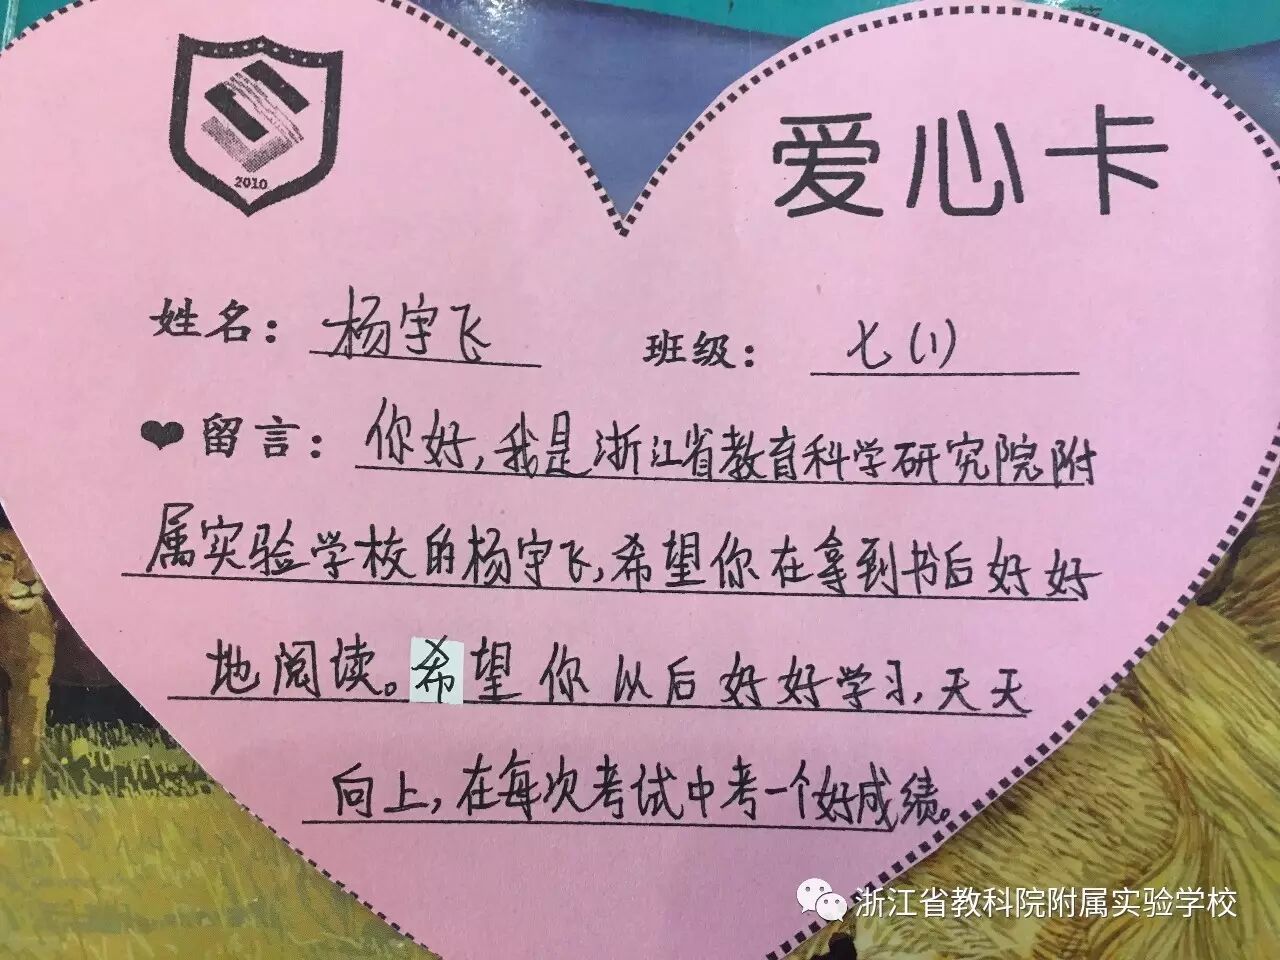 2010
爱心卡
姓名：杨宇飞 班级：七(1)
❤留言：你好，我是浙江省教育科学研究院附
属实验学校的杨宇飞，希望你在拿到书后好好
地阅读。希望你以后好好学习，天天
向上，在每次考试中考一个好成绩。
浙江省教科院附属实验学校